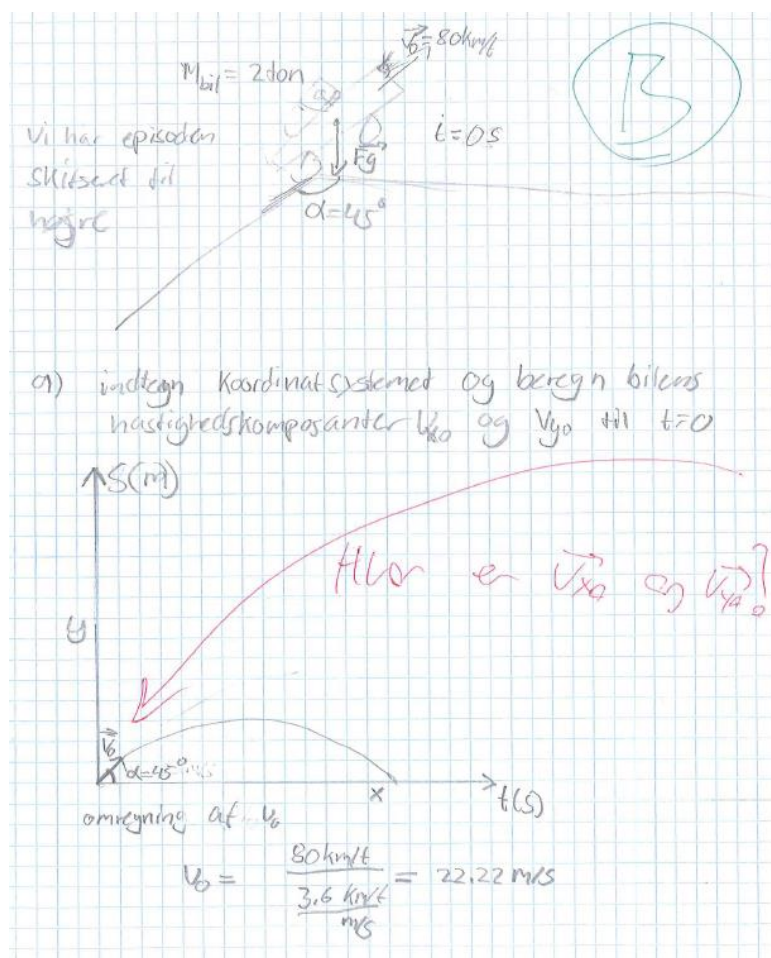 V₀ = 80km/t
M_bil = 2 ton
B
Vi har episoden
t = 0s
Fg
skitseret til
højre
α = 45°
a) indtegn koordinatsystemet og beregn bilens
hastighedskomposanter Vx0 og Vy0 til t=0
S(m)
Hvor er Vx0 og Vy0?
y
V₀
α=45°
x
t(s)
omregning af V₀
V₀ = 80km/t / 3,6 km/t / m/s = 22.22 m/s